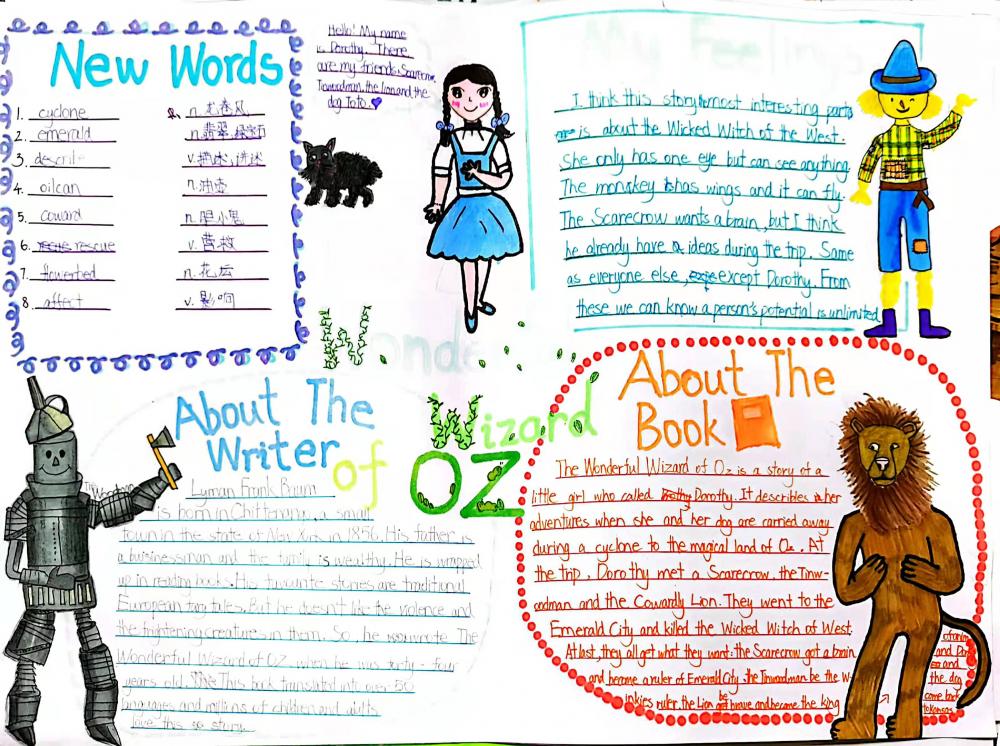 New Words
1. cyclone n. 龙卷风
2. emerald n. 翡翠,绿宝石
3. describe v. 描述,讲述
4. oilcan n. 油壶
5. coward n. 胆小鬼
6. rescue v. 营救
7. flowerbed n. 花坛
8. affect v. 影响
Hello! My name
is Dorothy. There
are my friends: Scarecrow,
Tinwoodman, the lion and the
dog Toto.
My Feelings
I think this story most interesting parts
is about the Wicked Witch of the West.
She only has one eye but can see anything.
The monskey has wings and it can fly.
The Scarecrow wants a brain, but I think
he already have a ideas during the trip. Same
as everyone else, except Dorothy. From
these we can know a person's potential is unlimited
Wonderful
Wizard
of OZ
About The
Writer
Lyman Frank Baum
is born in Chittenang, a small
town in the state of New York in 1856. His father is
a businessman and the family is wealthy. He is wrapped
up in reading books. His favourite stories are traditional
European fairy tales. But he doesn't like the violence and
the frightening creatures in them. So, he wrote The
Wonderful Wizard of OZ when he was forty-four
years old. This book translated into over 50
languages and millions of children and adults
love this so story.
About The
Book
The Wonderful Wizard of Oz is a story of a
little girl who called Dorothy. It describes her
adventures when she and her dog are carried away
during a cyclone to the magical land of Oz. At
the trip, Dorothy met a Scarecrow, the Tinw-
oodman and the Cowardly Lion. They went to the
Emerald City and killed the Wicked Witch of West.
At last, they all get what they want: the Scarecrow got a brain
and become a ruler of Emerald City. the Tinwoodman be the W-
inkies ruler. the Lion be brave and became the king
and
and
the dog
come back
to Kansas.